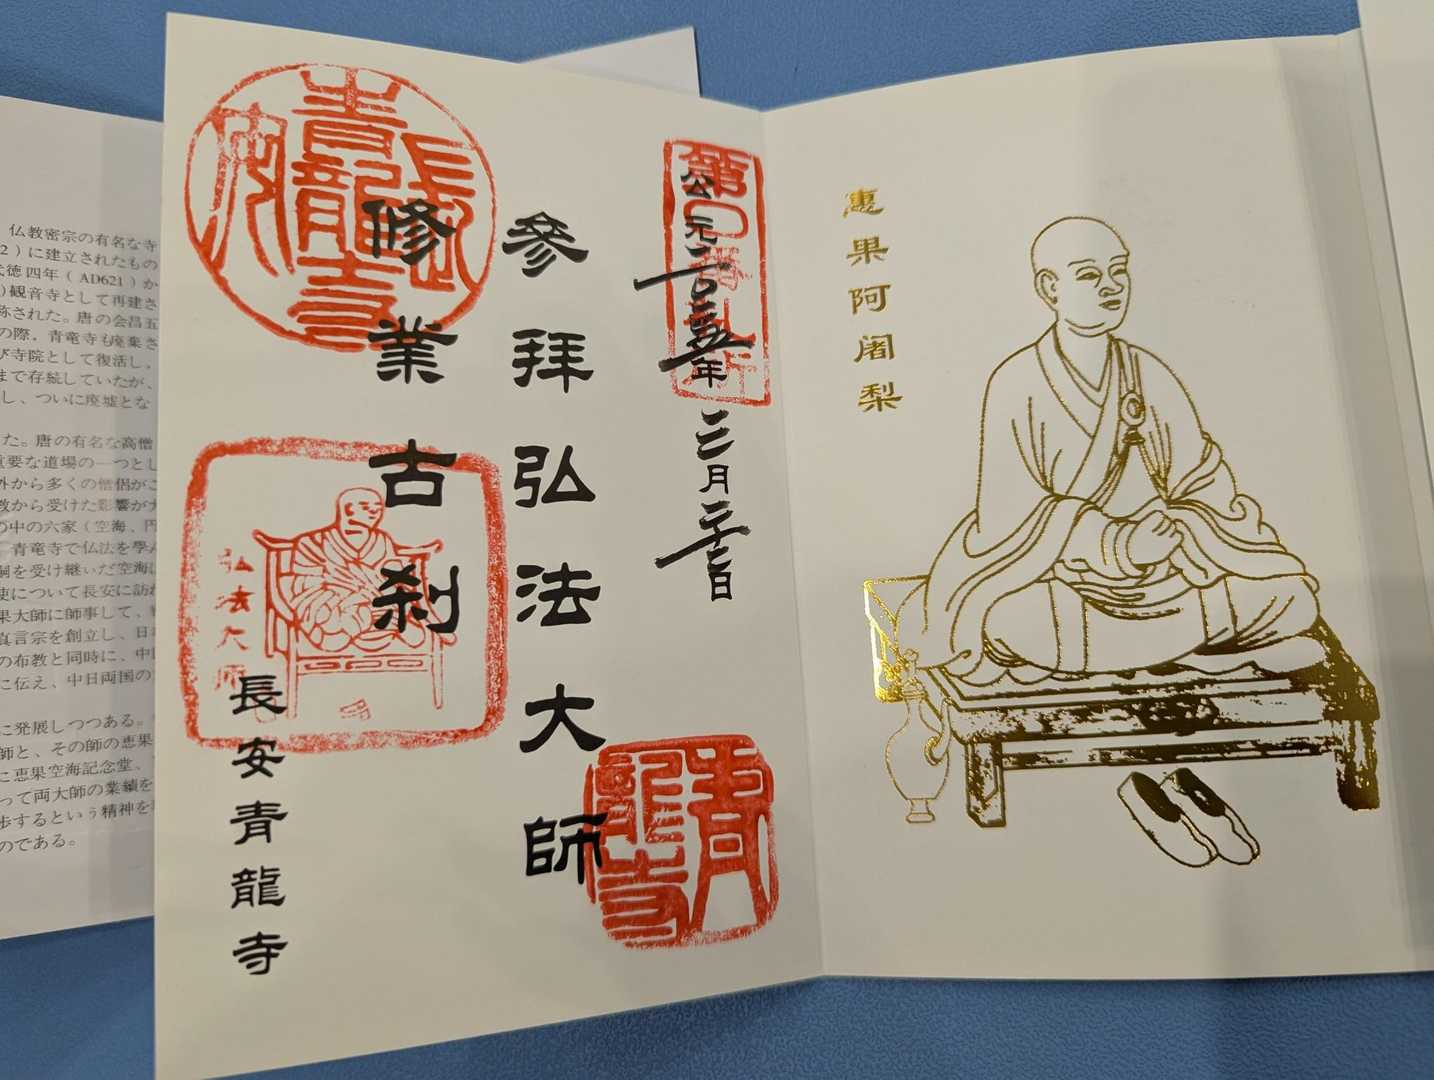 仏教密宗の有名な寺
2)に建立されたもの
徳四年(AD621)か
)観音寺として再建さ
称された。唐の会昌五
の際、青竜寺も廃棄さ
び寺院として復活し、
まで存続していたが、
し、ついに廃墟とな
た。唐の有名な高僧
重要な道場の一つとし
外から多くの僧侶がこ
教から受けた影響が
の中の六家(空海、円
青竜寺で仏法を學ん
嗣を受け継いだ空海
使について長安に訪
果大師に師事して、
真言宗を創立し、日
の布教と同時に、中
に伝え、中日両国の
に発展しつつある。
師と、その師の恵果
に恵果空海記念堂、
って両大師の業績を
歩するという精神を
のである。
惠果阿闍梨
第〇番札所
公元二〇二五年 三月日
參拜弘法大師
修業古刹
長安青龍寺
長安
青龍寺
弘法大師
青龍寺